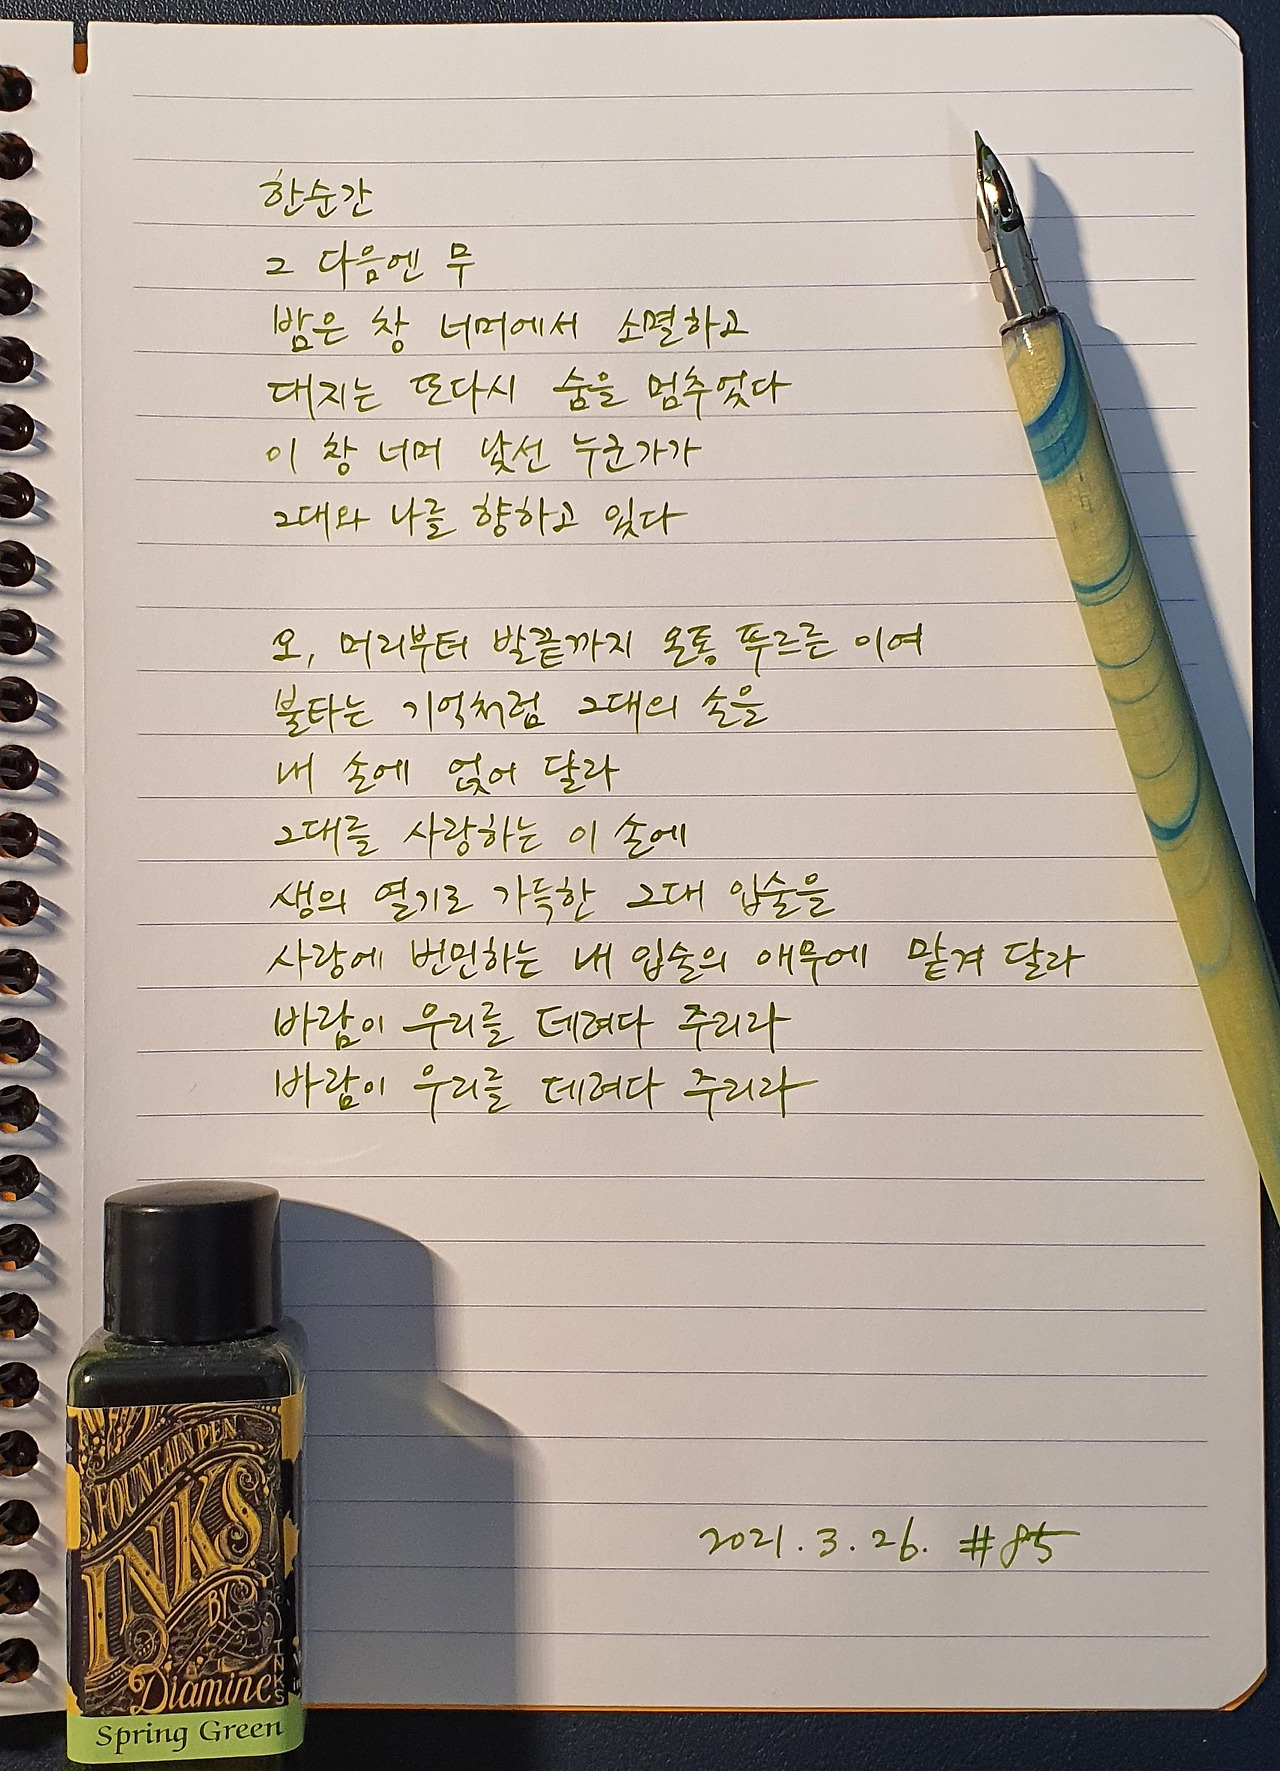 한순간
그 다음엔 무
밤은 창 너머에서 소멸하고
대지는 또다시 숨을 멈추었다
이 창 너머 낯선 누군가가
그대와 나를 향하고 있다
오, 머리부터 발끝까지 온통 푸르른 이여
불타는 기억처럼 그대의 손을
내 손에 얹어 달라
그대를 사랑하는 이 손에
생의 열기로 가득한 그대 입술을
사랑에 번민하는 내 입술의 애무에 맡겨 달라
바람이 우리를 데려다 주리라
바람이 우리를 데려다 주리라
2021.3.26. #85
FOUNTAIN PEN
INKS
BY
Diamine
INKS
Spring Green